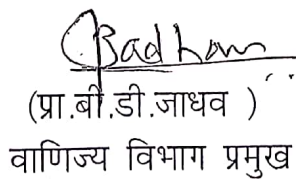 (प्रा.बी.डी.जाधव )
वाणिज्य विभाग प्रमुख